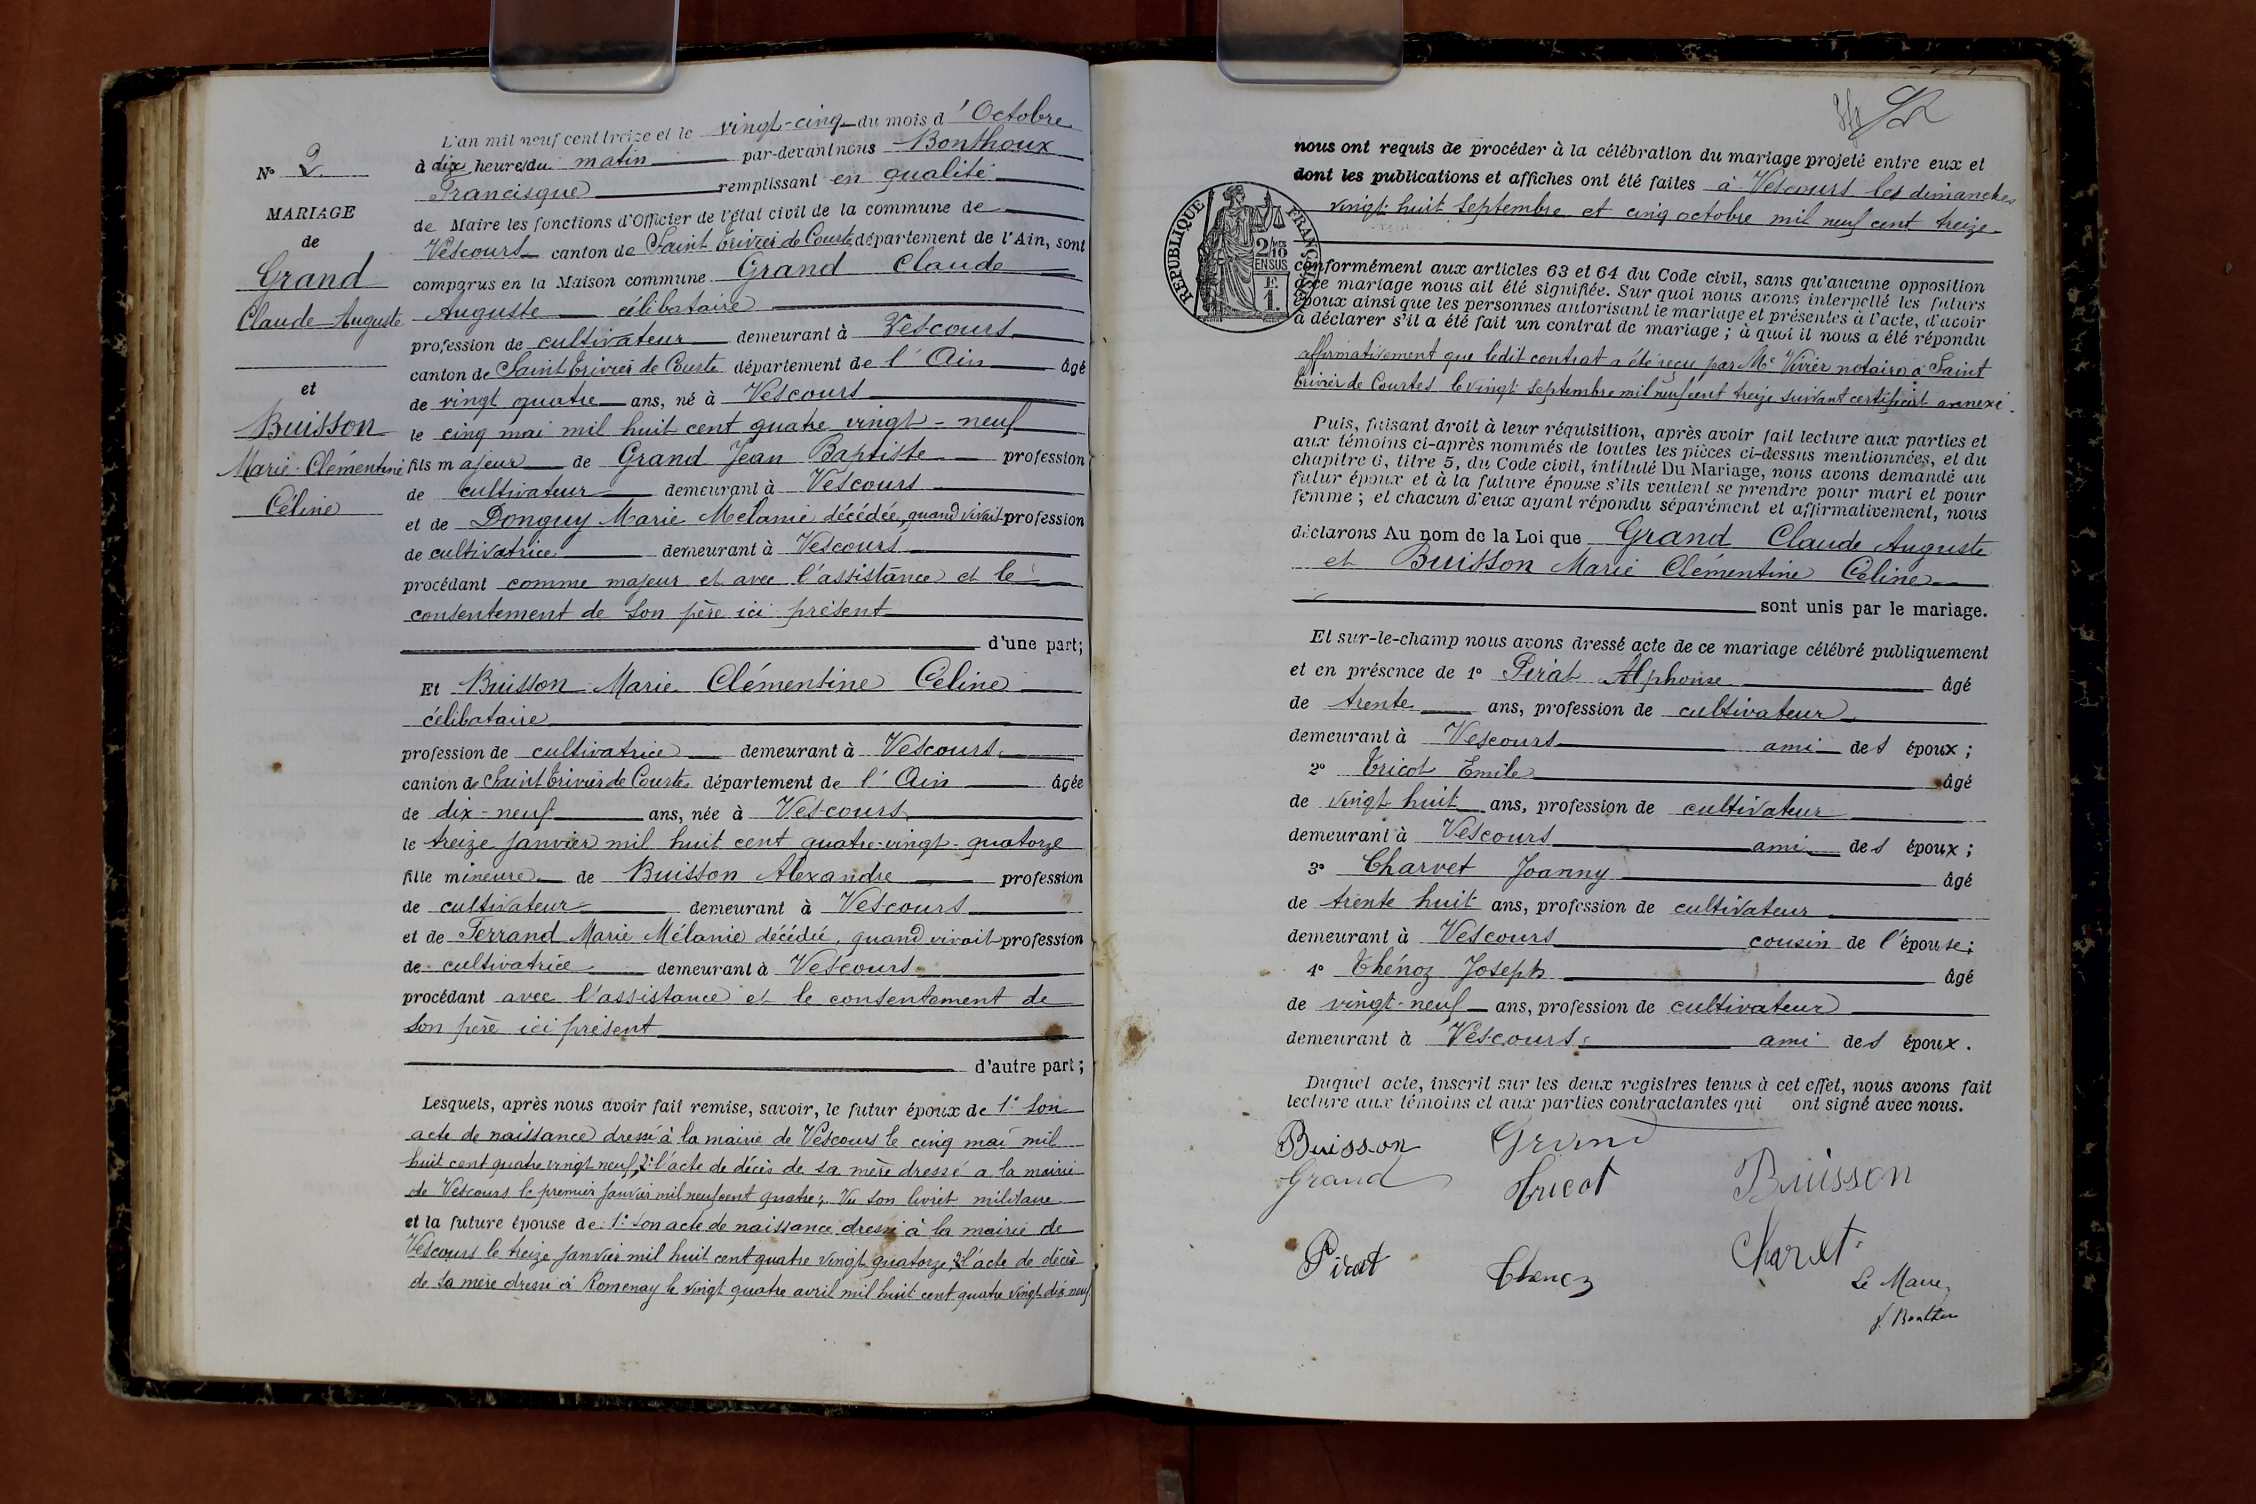 N° 2
MARIAGE
de
Grand
Claude Auguste
et
Buisson
Marie Clémentine
Céline
L'an mil neuf cent treize et le vingt-cinq du mois d'Octobre
à dix heures du matin par-devant nous Bonthoux
Francisque remplissant en qualité
de Maire les fonctions d'Officier de l'état civil de la commune de
Vescours canton de Saint Trivier de Courtes département de l'Ain, sont
comparus en la Maison commune Grand Claude
Auguste célibataire
profession de cultivateur demeurant à Vescours
canton de Saint Trivier de Courte département de l'Ain âgé
de vingt quatre ans, né à Vescours
le cinq mai mil huit cent quatre vingt-neuf
fils majeur de Grand Jean Baptiste profession
de cultivateur demeurant à Vescours
et de Donguy Marie Mélanie décédée, quand vivait profession
de cultivatrice demeurant à Vescours
procédant comme majeur et avec l'assistance et le
consentement de son père ici présent
d'une part;
Et Buisson Marie Clémentine Céline
célibataire
profession de cultivatrice demeurant à Vescours
canton de Saint Trivier de Courtes département de l'Ain âgée
de dix-neuf ans, née à Vescours
le treize janvier mil huit cent quatre-vingt-quatorze
fille mineure de Buisson Alexandre profession
de cultivateur demeurant à Vescours
et de Ferrand Marie Mélanie décédée, quand vivait profession
de cultivatrice demeurant à Vescours
procédant avec l'assistance et le consentement de
son père ici présent
d'autre part;
Lesquels, après nous avoir fait remise, savoir, le futur époux de 1° son
acte de naissance dressé à la mairie de Vescours le cinq mai mil
huit cent quatre vingt neuf, 2° l'acte de décès de sa mère dressé a la mairie
de Vescours le premier janvier mil neuf cent quatre; Vu son livret militaire
et la future épouse de: 1° son acte de naissance dressé à la mairie de
Vescours le treize janvier mil huit cent quatre vingt quatorze, 2° l'acte de décès
de sa mère dressé à Romenay le vingt quatre avril mil huit cent quatre vingt dix neuf
nous ont requis de procéder à la célébration du mariage projeté entre eux et
dont les publications et affiches ont été faites à Vescours les dimanches
vingt-huit septembre et cinq octobre mil neuf cent treize
RÉPUBLIQUE FRANÇAISE
2/10 EN SUS
F. 1.
conformément aux articles 63 et 64 du Code civil, sans qu'aucune opposition
à ce mariage nous ait été signifiée. Sur quoi nous avons interpellé les futurs
époux ainsi que les personnes autorisant le mariage et présentes à l'acte, d'avoir
à déclarer s'il a été fait un contrat de mariage; à quoi il nous a été répondu
affirmativement que ledit contrat a été reçu par Me Vivier notaire à Saint
Trivier de Courtes le vingt septembre mil neuf cent treize suivant certificat annexé.
Puis, faisant droit à leur réquisition, après avoir fait lecture aux parties et
aux témoins ci-après nommés de toutes les pièces ci-dessus mentionnées, et du
chapitre 6, titre 5, du Code civil, intitulé Du Mariage, nous avons demandé au
futur époux et à la future épouse s'ils veulent se prendre pour mari et pour
femme; et chacun d'eux ayant répondu séparément et affirmativement, nous
déclarons Au nom de la Loi que Grand Claude Auguste
et Buisson Marie Clémentine Céline
sont unis par le mariage.
Et sur-le-champ nous avons dressé acte de ce mariage célébré publiquement
et en présence de 1° Pirat Alphonse âgé
de trente ans, profession de cultivateur
demeurant à Vescours ami des époux;
2° Tricot Emile âgé
de vingt huit ans, profession de cultivateur
demeurant à Vescours ami des époux;
3° Charvet Joanny âgé
de trente huit ans, profession de cultivateur
demeurant à Vescours cousin de l'épouse;
4° Thénoz Joseph âgé
de vingt-neuf ans, profession de cultivateur
demeurant à Vescours ami des époux.
Duquel acte, inscrit sur les deux registres tenus à cet effet, nous avons fait
lecture aux témoins et aux parties contractantes qui ont signé avec nous.
Buisson Grand
Grand Tricot Buisson
Pirat Thenoz Charvet
Le Maire
f. Bonthoux